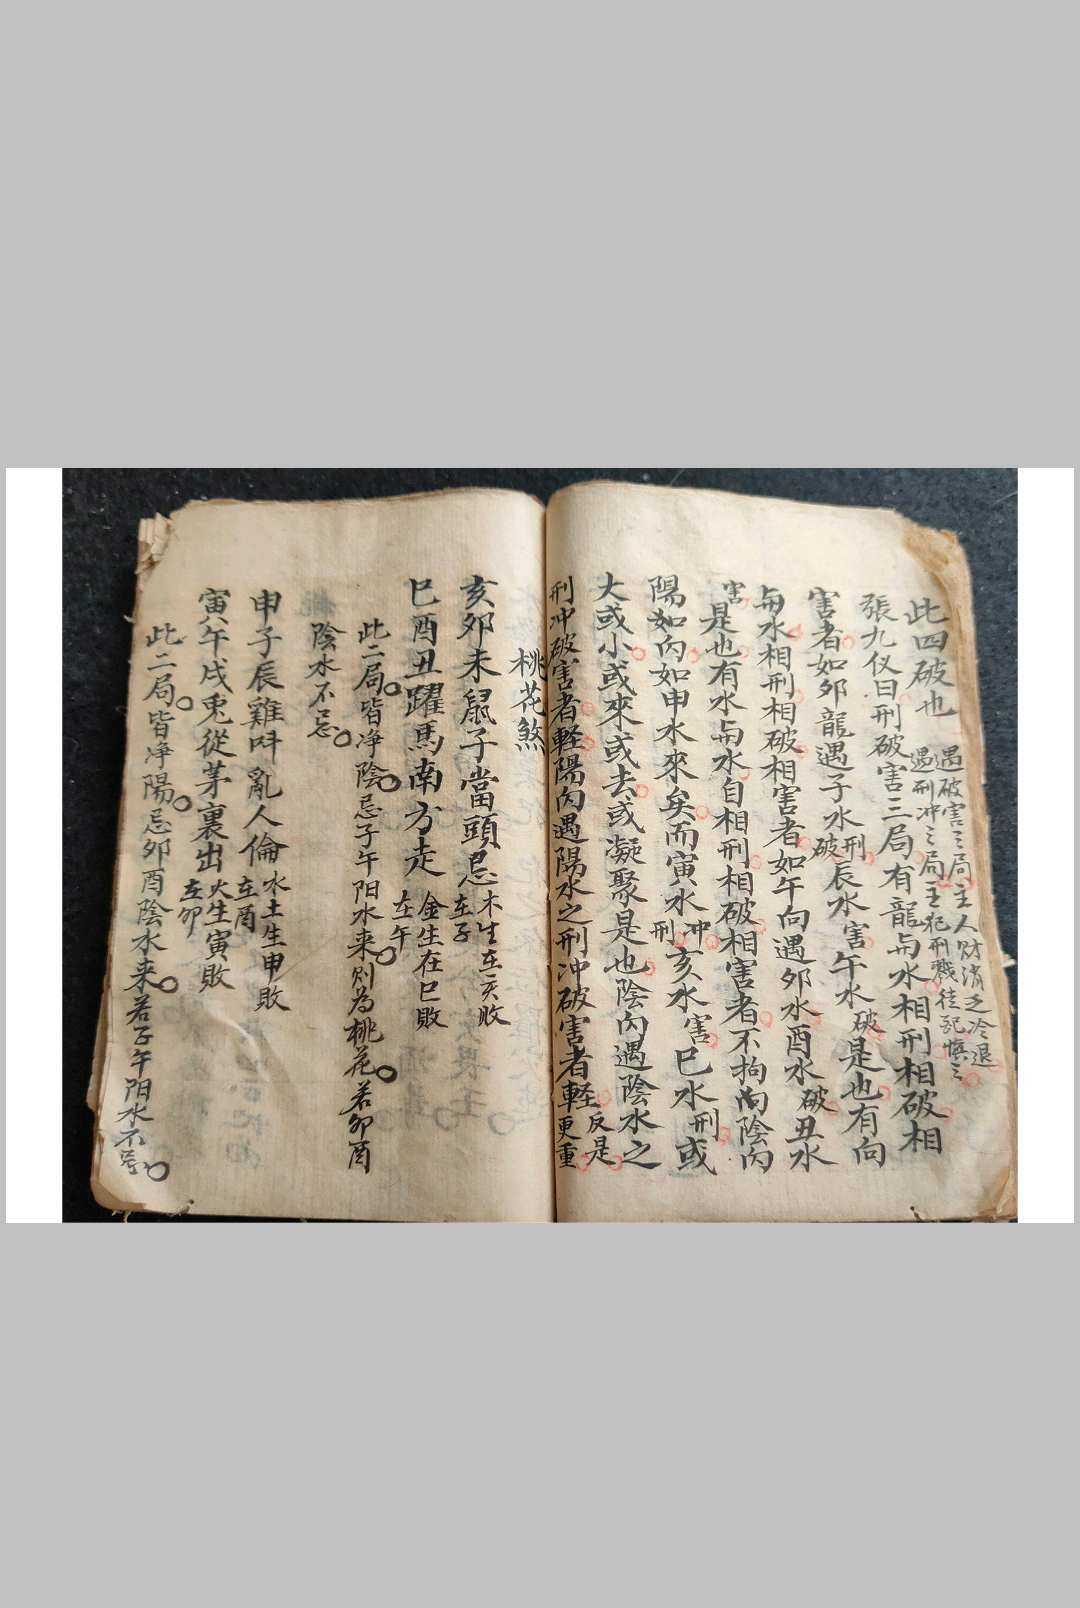 此四破也
遇破害之局主人財消乏冷退
遇刑冲之局主犯刑戮徒配慎之
張九仪曰刑破害三局有龍与水相刑相破相
害者如卯龍遇子水刑破辰水害午水破是也有向
与水相刑相破相害者如午向遇卯水酉水破丑水
害是也有水与水自相刑相破相害者不拘向陰向
陽如丙如申水來矣而寅水冲刑亥水害巳水刑或
大或小或來或去或凝聚是也陰向遇陰水之
刑冲破害者輕陽向遇陽水之刑冲破害者輕反是更重
桃花煞
亥卯未鼠子當頭忌木生在亥敗在子
巳酉丑躍馬南方走金生在巳敗在午
此二局皆净陰忌子午阳水来则為桃花若卯酉
陰水不忌
申子辰雞呌亂人倫水土生申敗在酉
寅午戌兎從茅裏出火生寅敗在卯
此二局皆净陽忌卯酉陰水来若子午阳水不忌